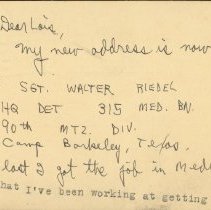 Dear Lois,
My new address is now
SGT. WALTER RIEDEL
HQ DET 315 MED. BN.
90th MTZ. DIV.
Camp Barkeley, Texas.
last I got the job in Med
hat I've been working at getting